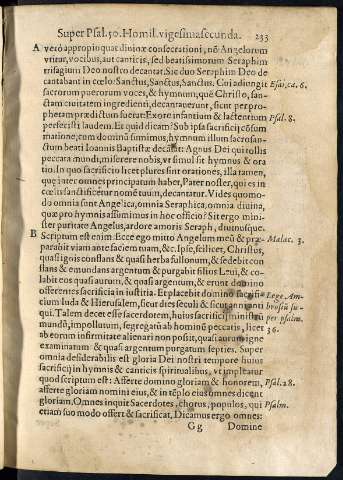 Super Psal. 50. Homil. vigesimasecunda. 233
A verò appropinquat diuinæ consecrationi, nõ Angelorum
vtitur, vocibus, aut canticis, sed beatissimorum Seraphim
trisagium Deo nostro decantat. Sic duo Seraphim Deo de
cantabant in cœlo: Sanctus, Sanctus, Sanctus. Coi adiungit Esai, ca. 6.
sacrorum puerorum voces, & hymnum, quẽ Christo, san-
ctam ciuitatem ingredienti, decantauerunt, sicut per pro-
phetam prædictum fuerat: Ex ore infantium & lactentium Psal. 8.
perfecisti laudem. Et quid dicam? Sub ipsa sacrificij cõsum
matione, cum dominũ sumimus, hymnum illum sacrosan-
ctum beati Ioannis Baptistæ decãtat: Agnus Dei qui tollis
peccata mundi, miserere nobis, vt simul sit hymnus & ora
tio. In quo sacrificio licet plures sint orationes, illa tamen,
quę inter omnes principatum habet, Pater noster, qui es in
cœlis sanctificetur nomẽ tuum, decantatur. Vides quomo-
do omnia sunt Angelica, omnia Seraphica, omnia diuina,
quæ pro hymnis assumimus in hoc officio? Sit ergo mini-
ster puritate Angelus, ardore amoris Seraph, diuinusque.
B Scriptum est enim: Ecce ego mitto Angelum meũ & præ- Malac. 3.
parabit viam ante faciem tuam, &c. Ipse, scilicet, Christus,
quasi ignis conflans & quasi herba fullonum, & sedebit con
flans & emundans argentum & purgabit filios Leui, & co-
labit eos quasi aurum, & quasi argentum, & erunt domino
offerentes sacrificia in iustitia. Et placebit domino sacrifi- Lege Am-
cium Iuda & Hierusalem, sicut dies seculi & sicut anni anti brosiũ su-
qui. Talem decet esse sacerdotem, huius sacrificij ministrũ per psalm.
mundũ, impollutum, segregatũ ab hominũ peccatis, licet 36.
ab eorum infirmitate alienari non possit, quasi aurum igne
examinatum & quasi argentum purgatum septies. Super
omnia desiderabilis est gloria Dei nostri tempore huius
sacrificij in hymnis & canticis spiritualibus, vt impleatur
quod scriptum est: Afferte domino gloriam & honorem, Psal. 28.
afferte gloriam nomini eius, & in tẽplo eius omnes dicent
gloriam. Omnes inquit Sacerdotes, chorus, populus, qui Psalm.
etiam suo modo offert & sacrificat, Dicamus ergo omnes:
Gg Domine